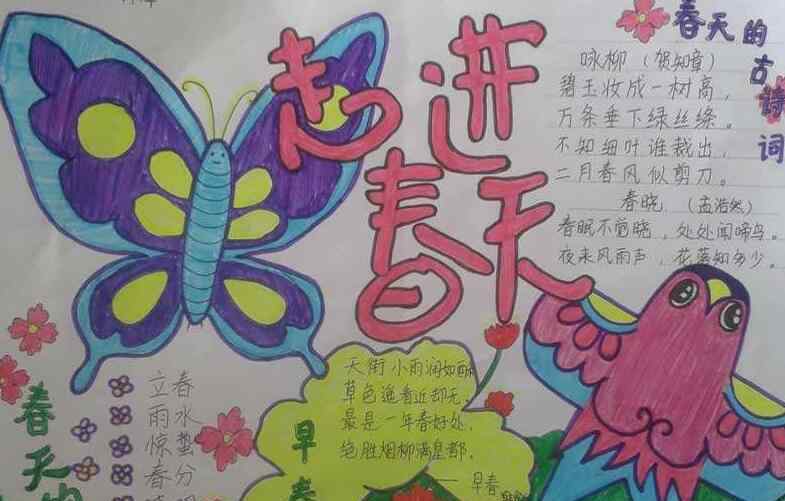 走进
春天
春天的古诗词
咏柳（贺知章）
碧玉妆成一树高，
万条垂下绿丝绦。
不知细叶谁裁出，
二月春风似剪刀。
春晓 （孟浩然）
春眠不觉晓，处处闻啼鸟。
夜来风雨声，花落知多少。
春天
立春
雨水
惊蛰
春分
早春
天街小雨润如酥
草色遥看近却无，
最是一年春好处，
绝胜烟柳满皇都。
——早春